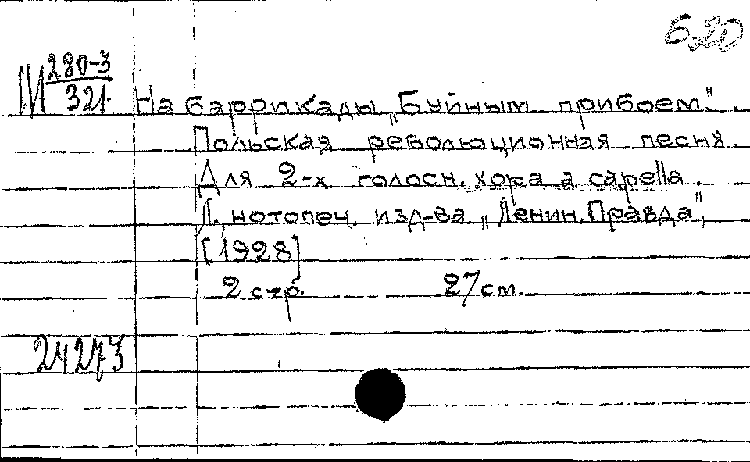 6.20
М 280-3
321.
На баррикады „Буйным прибоем".
Польская революционная песня.
Для 2-х голосн. хора a capella.
Л., нотопеч. изд-ва „Ленин. Правда",
[1928]
2 стр. 27 см.
24273